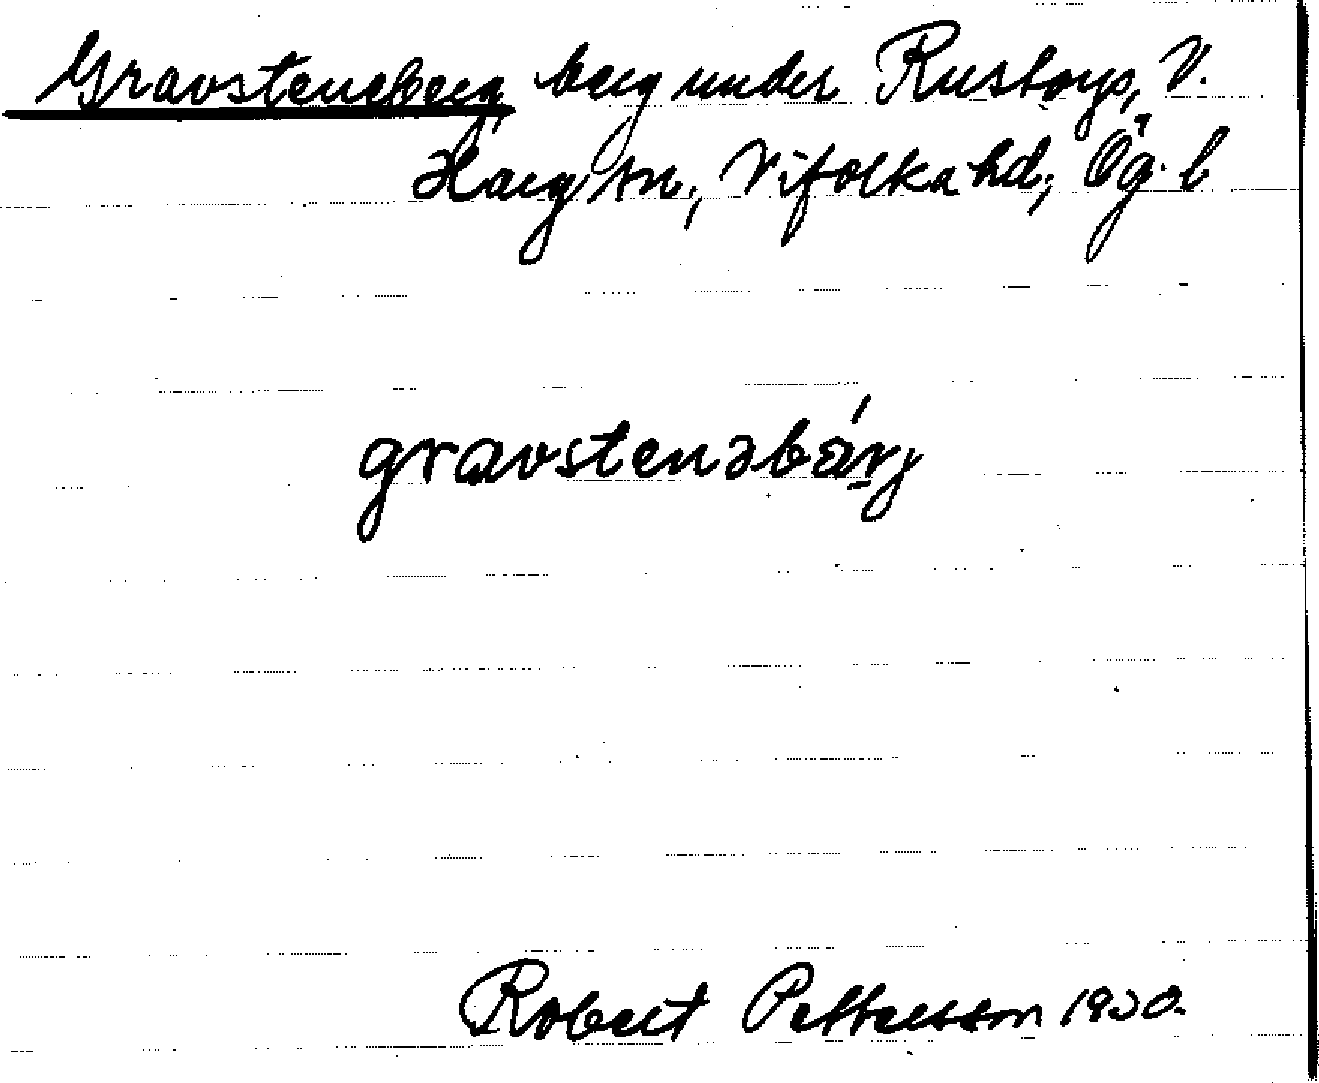 Gravsteneberg berg under Rustorp, V.
Harg sn, Vifolka hd, Ög. l
gravstenəbärj
Robert Pettersson 1930.